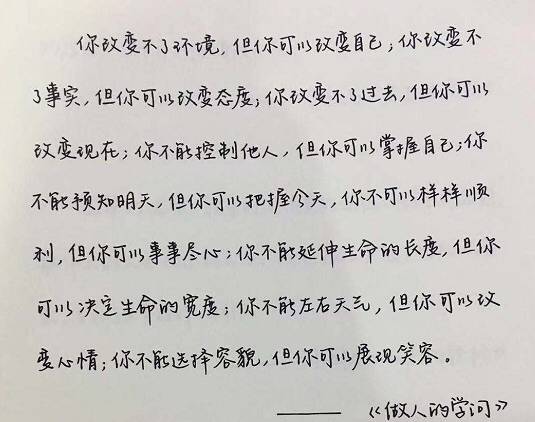 你改变不了环境，但你可以改变自己；你改变不
了事实，但你可以改变态度；你改变不了过去，但你可以
改变现在；你不能控制他人，但你可以掌握自己；你
不能预知明天，但你可以把握今天，你不可以样样顺
利，但你可以事事尽心；你不能延伸生命的长度，但你
可以决定生命的宽度；你不能左右天气，但你可以改
变心情；你不能选择容貌，但你可以展现笑容。
——《做人的学问》